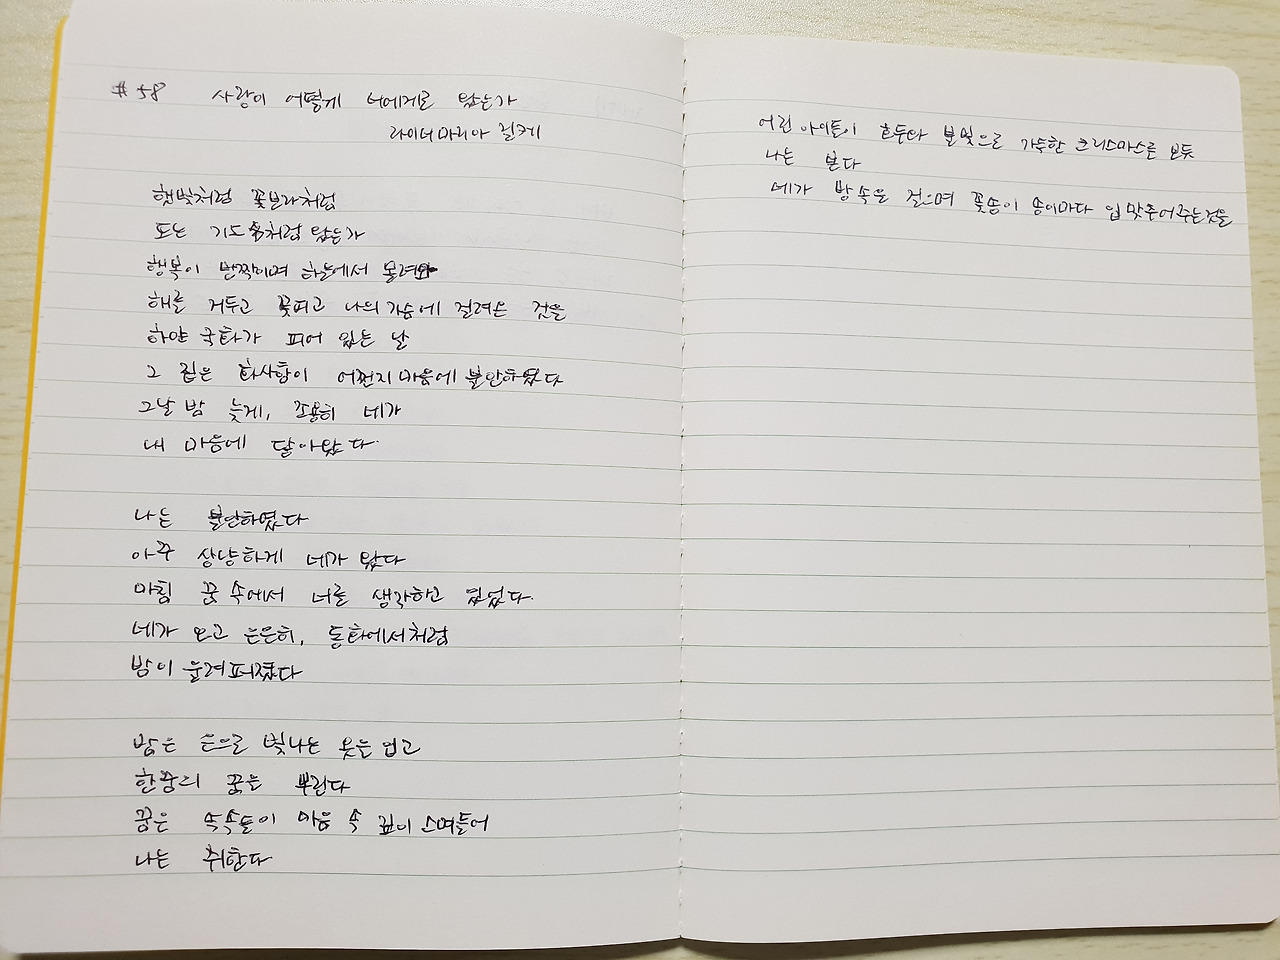 #58 사랑이 어떻게 너에게로 왔는가
라이너 마리아 릴케
햇빛처럼 꽃보라처럼
또는 기도처럼 왔는가
행복이 반짝이며 하늘에서 몰려와
해를 거두고 꽃피고 나의 가슴에 걸려온 것을
하얀 국화가 피어 있는 날
그 집은 화사함이 어쩐지 마음에 불안하였다
그날 밤 늦게, 조용히 네가
내 마음에 닿아왔다
나는 불안하였다
아주 상냥하게 네가 왔다
마침 꿈 속에서 너를 생각하고 있었다.
네가 오고 은은히, 동화에서처럼
밤이 울려 퍼졌다
밤은 은으로 빛나는 옷을 입고
한줌의 꿈을 뿌린다
꿈은 속속들이 마음 속 깊이 스며들어
나는 취한다
어린 아이들이 호두와 불빛으로 가득한 크리스마스를 보듯
나는 본다
네가 밤 속을 걸으며 꽃송이 송이마다 입 맞추어 주는 것을